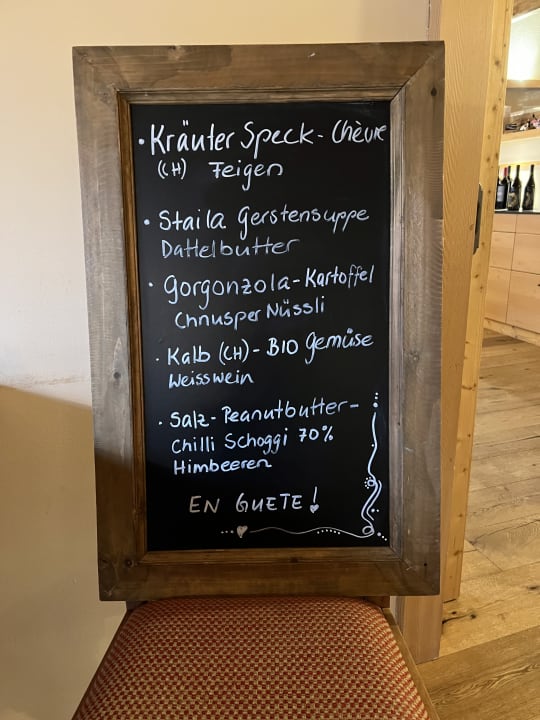 • Kräuter Speck - Chèvre
(CH) Feigen
• Staila Gerstensuppe
Dattelbutter
• Gorgonzola - Kartoffel
Chnusper Nüssli
• Kalb (CH) - BIO Gemüse
Weisswein
• Salz - Peanutbutter -
Chilli Schoggi 70%
Himbeeren
EN GUETE!